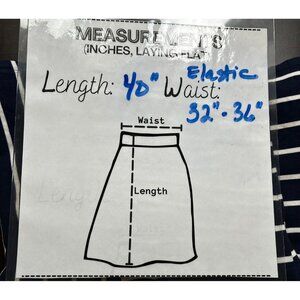 MEASUREMENTS
(INCHES, LAYING FLAT)
Elastic
Length: 40" Waist:
32"-36"
Waist
Length